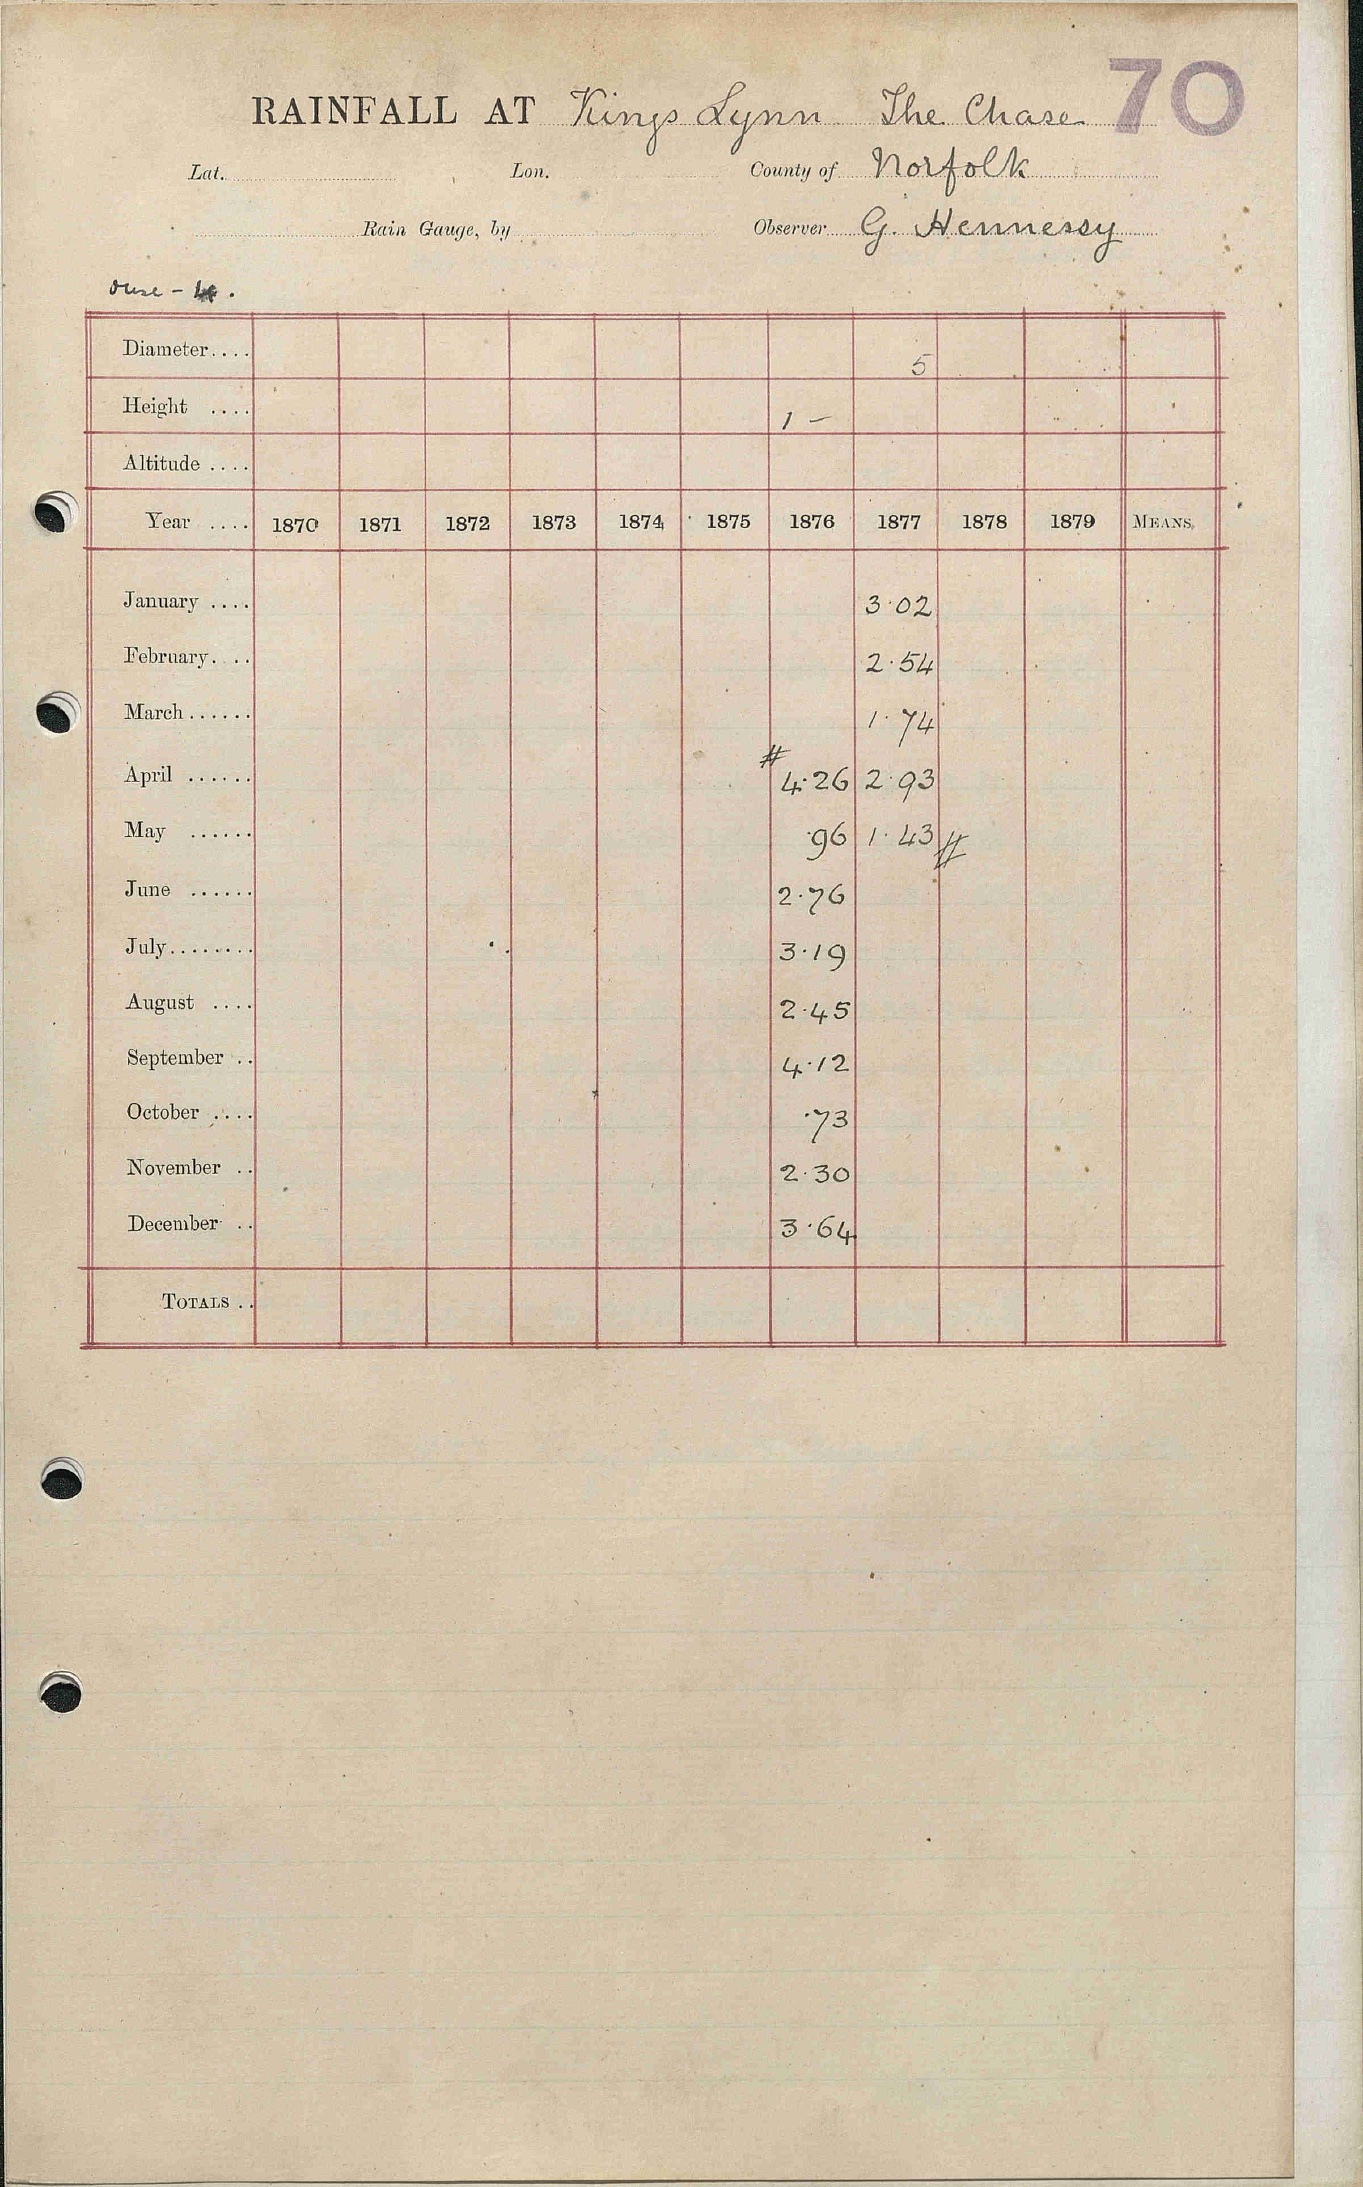 70
RAINFALL AT Kings Lynn The Chase
Lat. Lon. County of Norfolk
Rain Gauge, by Observer G. Hennessy
Ouse -
Diameter.... 5
Height .... 1 -
Altitude ....
Year .... 1870 1871 1872 1873 1874 1875 1876 1877 1878 1879 MEANS.
January .... 3.02
February. .. 2.54
March...... 1.74
April ...... # 4.26 2.93
May ...... .96 1.43 #
June ...... 2.76
July........ 3.19
August .... 2.45
September .. 4.12
October .... .73
November .. 2.30
December .. 3.64
TOTALS ..